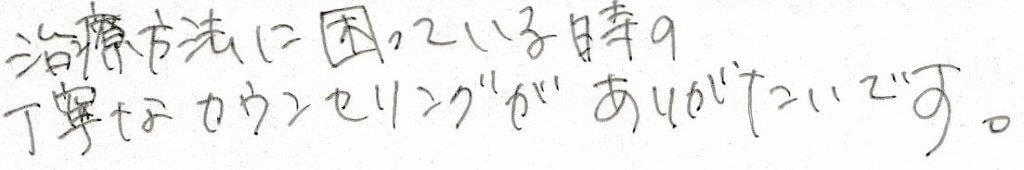 治療方法に困っている時の
丁寧なカウンセリングがありがたいです。